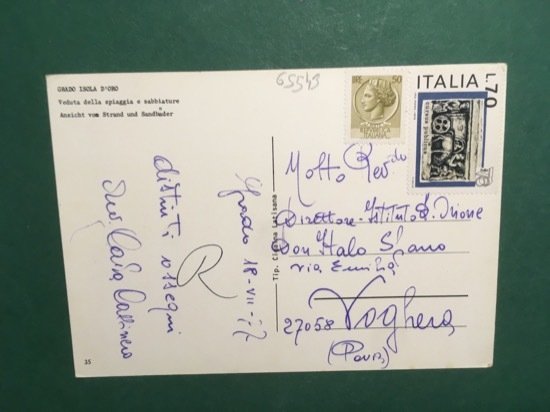 GRADO ISOLA D'ORO
Veduta della spiaggia e sabbiature
Ansicht vom Strand und Sandbäder
65543
LIRE 50
REPUBBLICA
ITALIANA
ITALIA L.70
Grado 18-VII-77
distinti ossequi
R
Tip. Cislina Latisana
Molto Rev.do
Direttore Istituto D. Orione
Don Italo Spano
via Emilia
27058 Voghera
(Pavia)
35